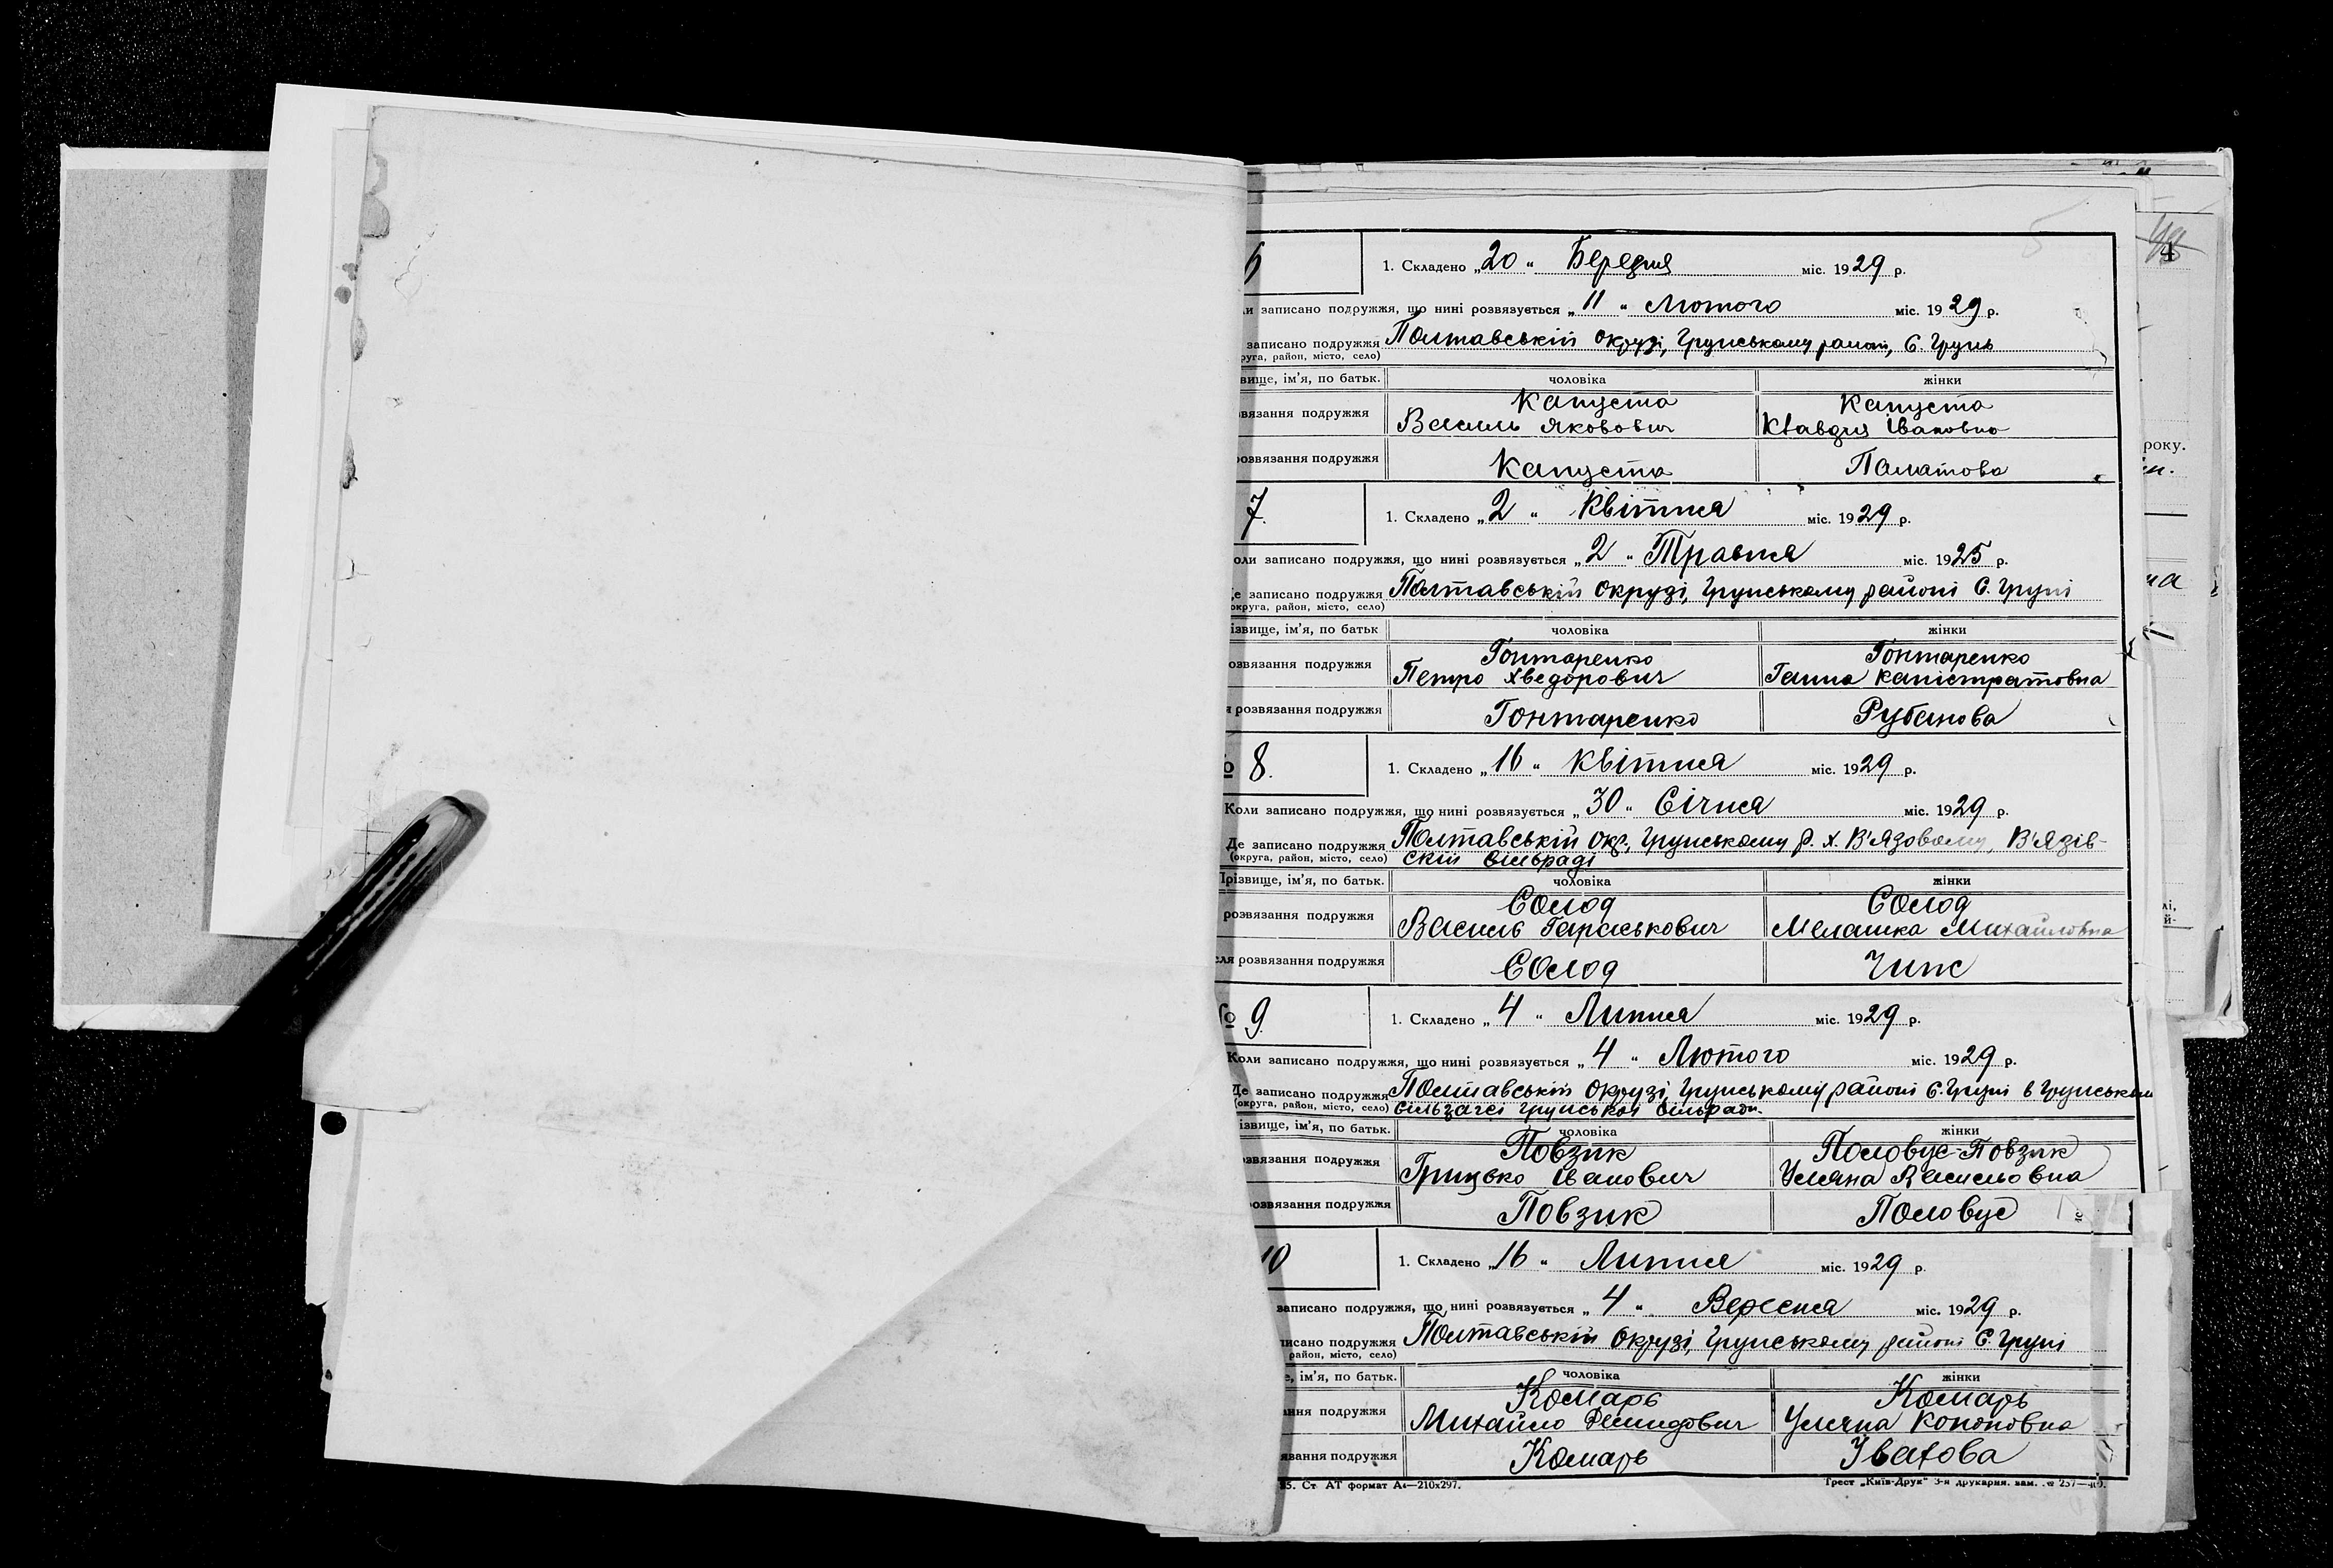 5
6 1. Складено „20“ Березня міс. 1929 р.
и записано подружжя, що нині розвязується „11“ Лютого міс. 1929 р.
записано подружжя Полтавській окрузі, Грунському районі, С. Грунь
руга, район, місто, село)
вище, ім'я, по батьк. чоловіка жінки
Капуста Капуста
звязання подружжя Василь Яковович Клавдия Івановна
розвязання подружжя Капуста Паматова
7. 1. Складено „2“ Квітня міс. 1929 р.
оли записано подружжя, що нині розвязується „2“ Травня міс. 1925 р.
е записано подружжя Полтавській окрузі, Грунському районі С. Груні
округа, район, місто, село)
ізвище, ім'я, по батьк чоловіка жінки
Гонтаренко Гонтаренко
озвязання подружжя Петро Хведорович Ганна Каністратовна
я розвязання подружжя Гонтаренко Рубанова
8. 1. Складено „16“ Квітня міс. 1929 р.
Коли записано подружжя, що нині розвязується „30“ Січня міс. 1929 р.
Де записано подружжя Полтавській Окр., Грунському р. х. В'язовому, В'язів-
(округа, район, місто, село) скій сільраді
Прізвище, ім'я, по батьк. чоловіка жінки
Солод Солод
розвязання подружжя Василь Гараськович Мелашка Михайловна
сля розвязання подружжя Солод Чипс
№ 9. 1. Складено „4“ Липня міс. 1929 р.
Коли записано подружжя, що нині розвязується „4“ Лютого міс. 1929 р.
Де записано подружжя Полтавській окрузі, Грунському районі С. Груні в Грунськом
(округа, район, місто, село) сільзагсі Грунської сільради.
ізвище, ім'я, по батьк. чоловіка жінки
Повзик Половус-Повзик
озвязання подружжя Грицько Іванович Уляна Васильовна
розвязання подружжя Повзик Половус
10 1. Складено „16“ Липня міс. 1929 р.
записано подружжя, що нині розвязується „4“ Вересня міс. 1929 р.
писано подружжя Полтавській окрузі, Грунському районі С. Груні
район, місто, село)
е, ім'я, по батьк. чоловіка жінки
Комарь Комарь
ання подружжя Михайло Демидович Уляна Кононовна
язання подружжя Комарь Іватова
35. Ст АТ формат А4—210х297. Трест „Київ-Друк“ 3-я друкарня. зам. № 257—
року.